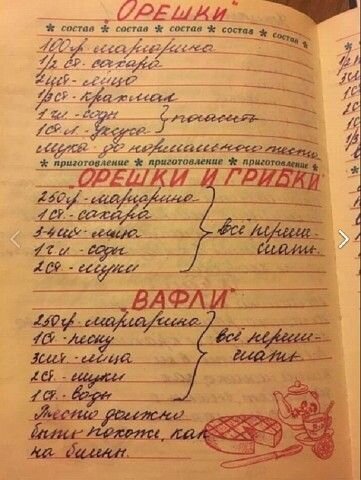 "ОРЕШКИ"
* состав * состав * состав * состав * состав *
100 гр. маргарина
1/2 ст. сахара
2 шт. яйца
1/3 ст. крахмал
1 ч.л. соды } погасить
1 ст.л. уксуса
мука до нормального теста
* приготовление * приготовление * приготовление *
"ОРЕШКИ И ГРИБКИ"
250 гр. маргарина
1 ст. сахара
3-4 шт. яйца } всё переме-
1 ч.л. соды шать.
2 ст. муки
"ВАФЛИ"
250 гр. маргарина
1 ст. песку } всё переме-
3 шт. яйца шать
2 ст. муки
1 ст. воды
Тесто должно
быть похоже, как
на блины.